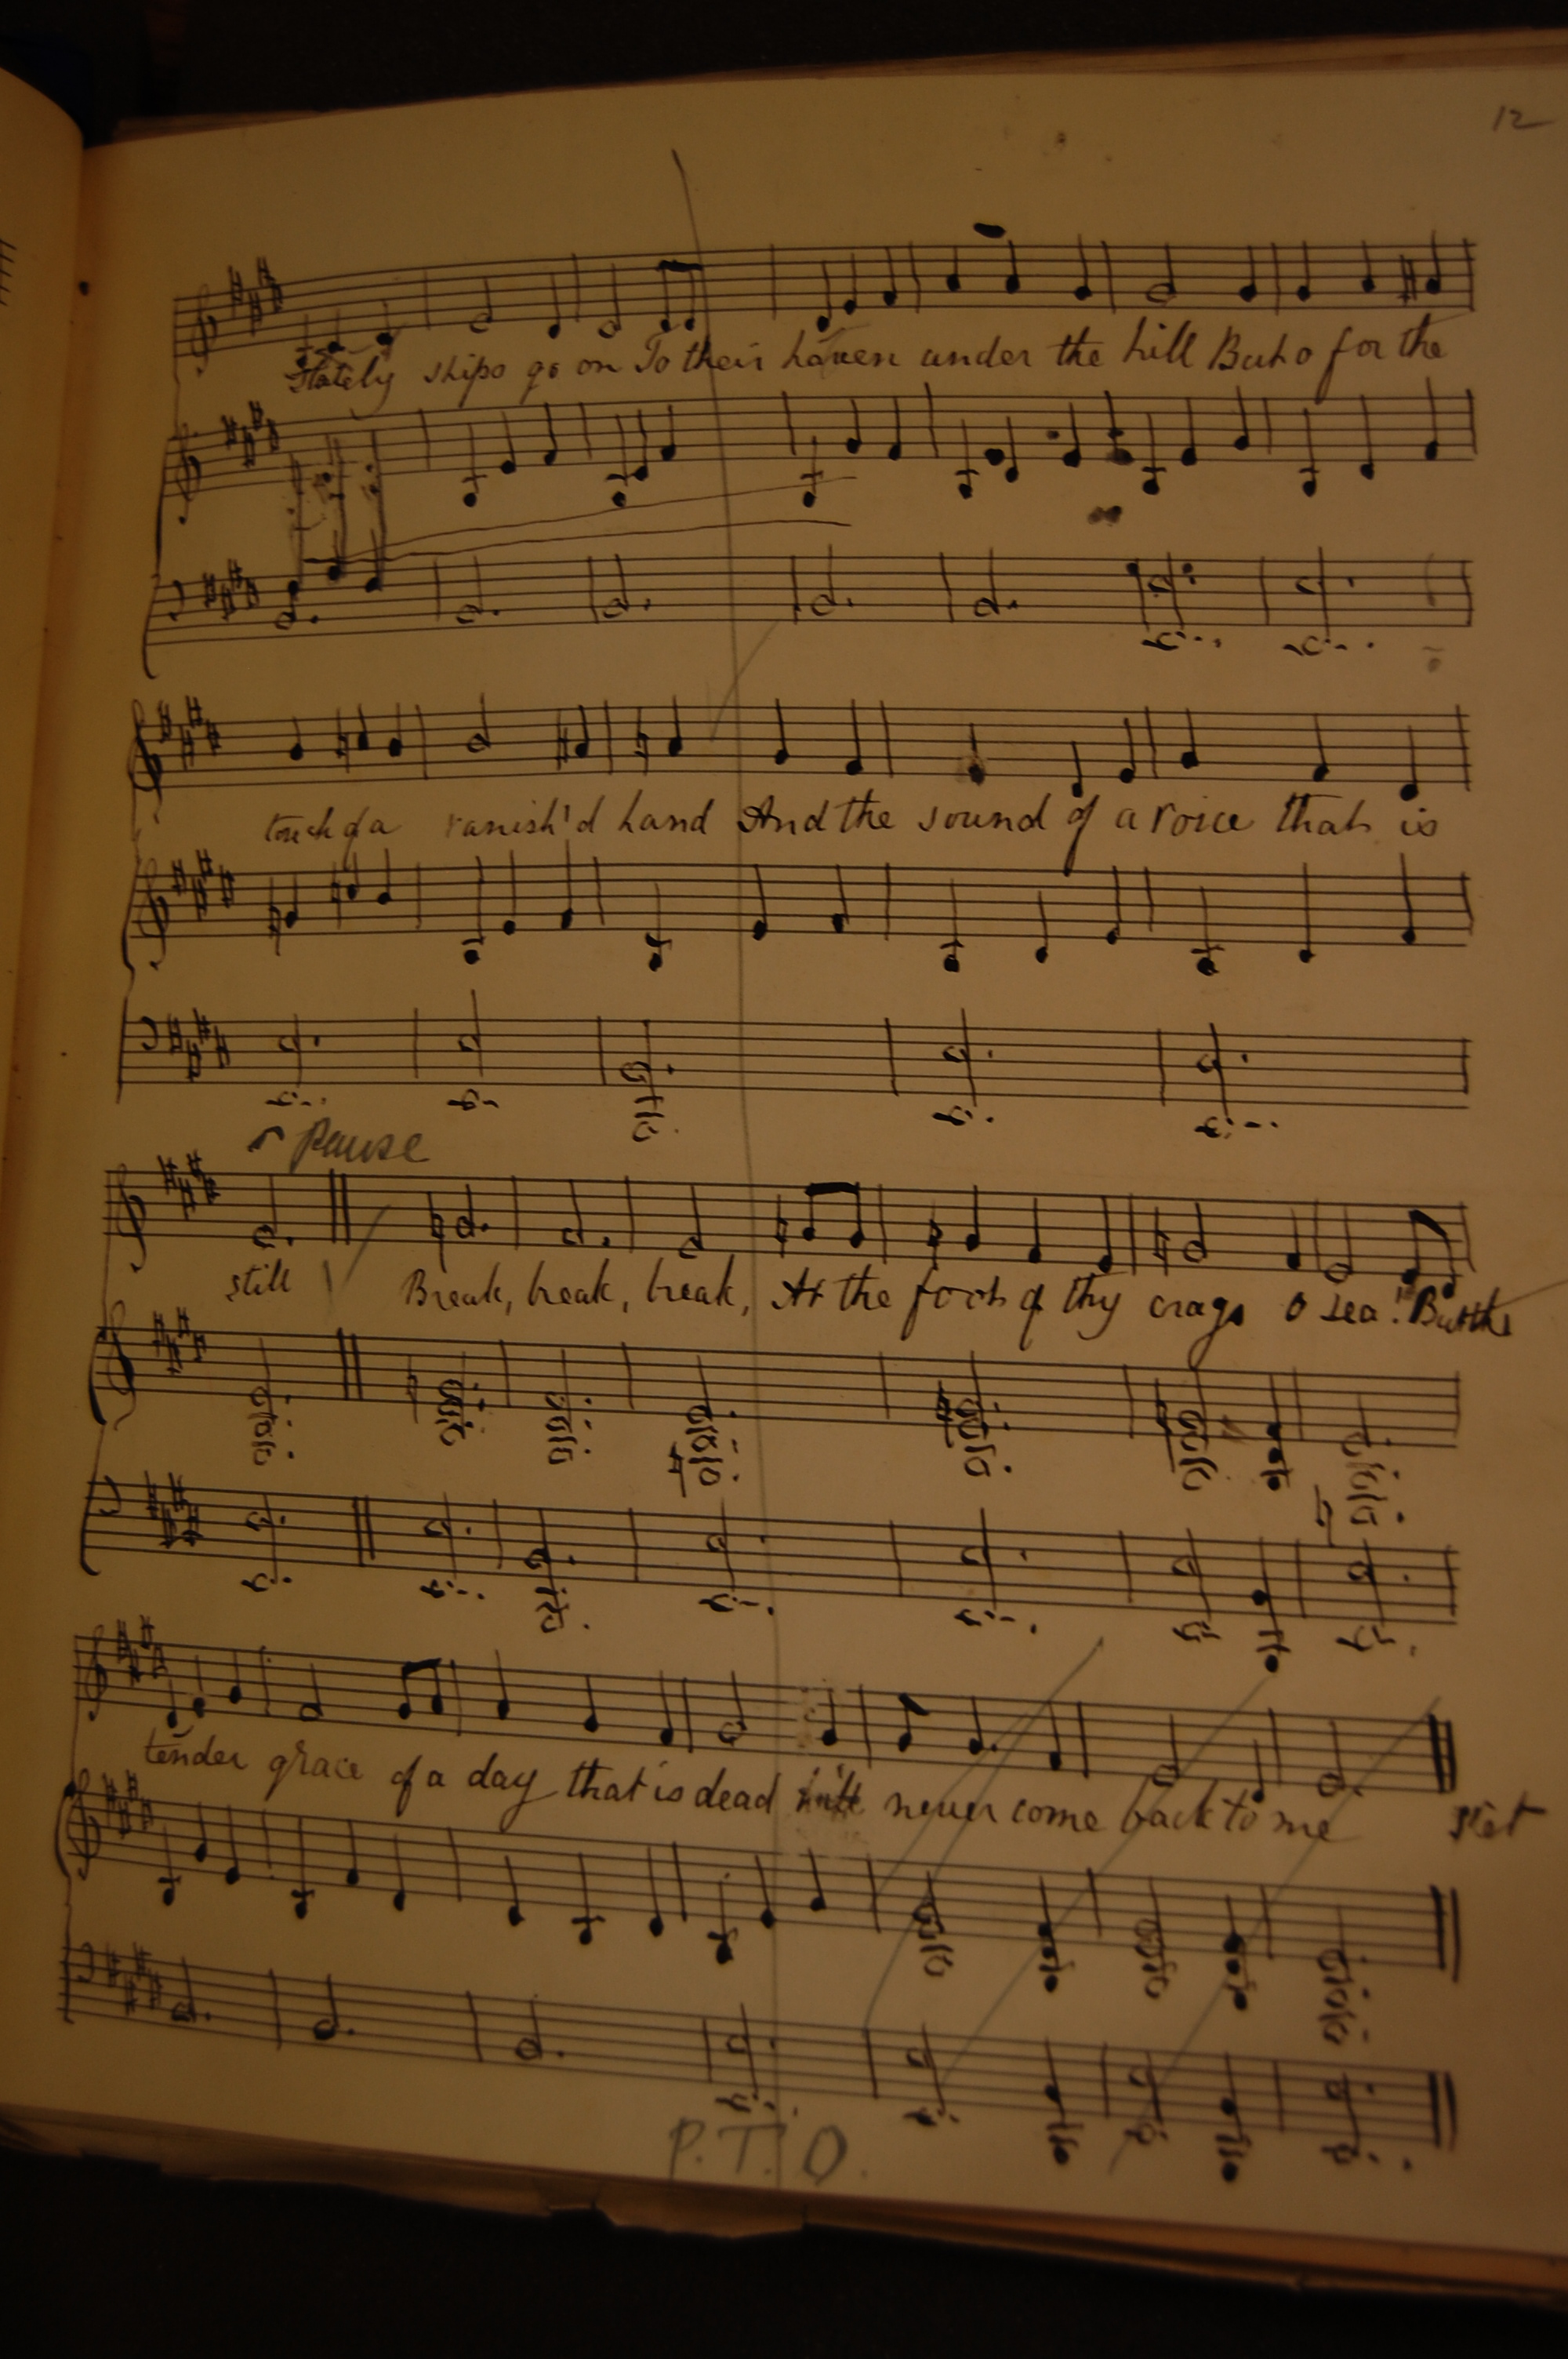 12
Stately ships go on To their haven under the hill But o for the
touch of a vanish'd hand And the sound of a voice that is
Pause
still Break, break, break, At the foot of thy crags O sea! But the
tender grace of a day that is dead never come back to me
stet
P.T.O.